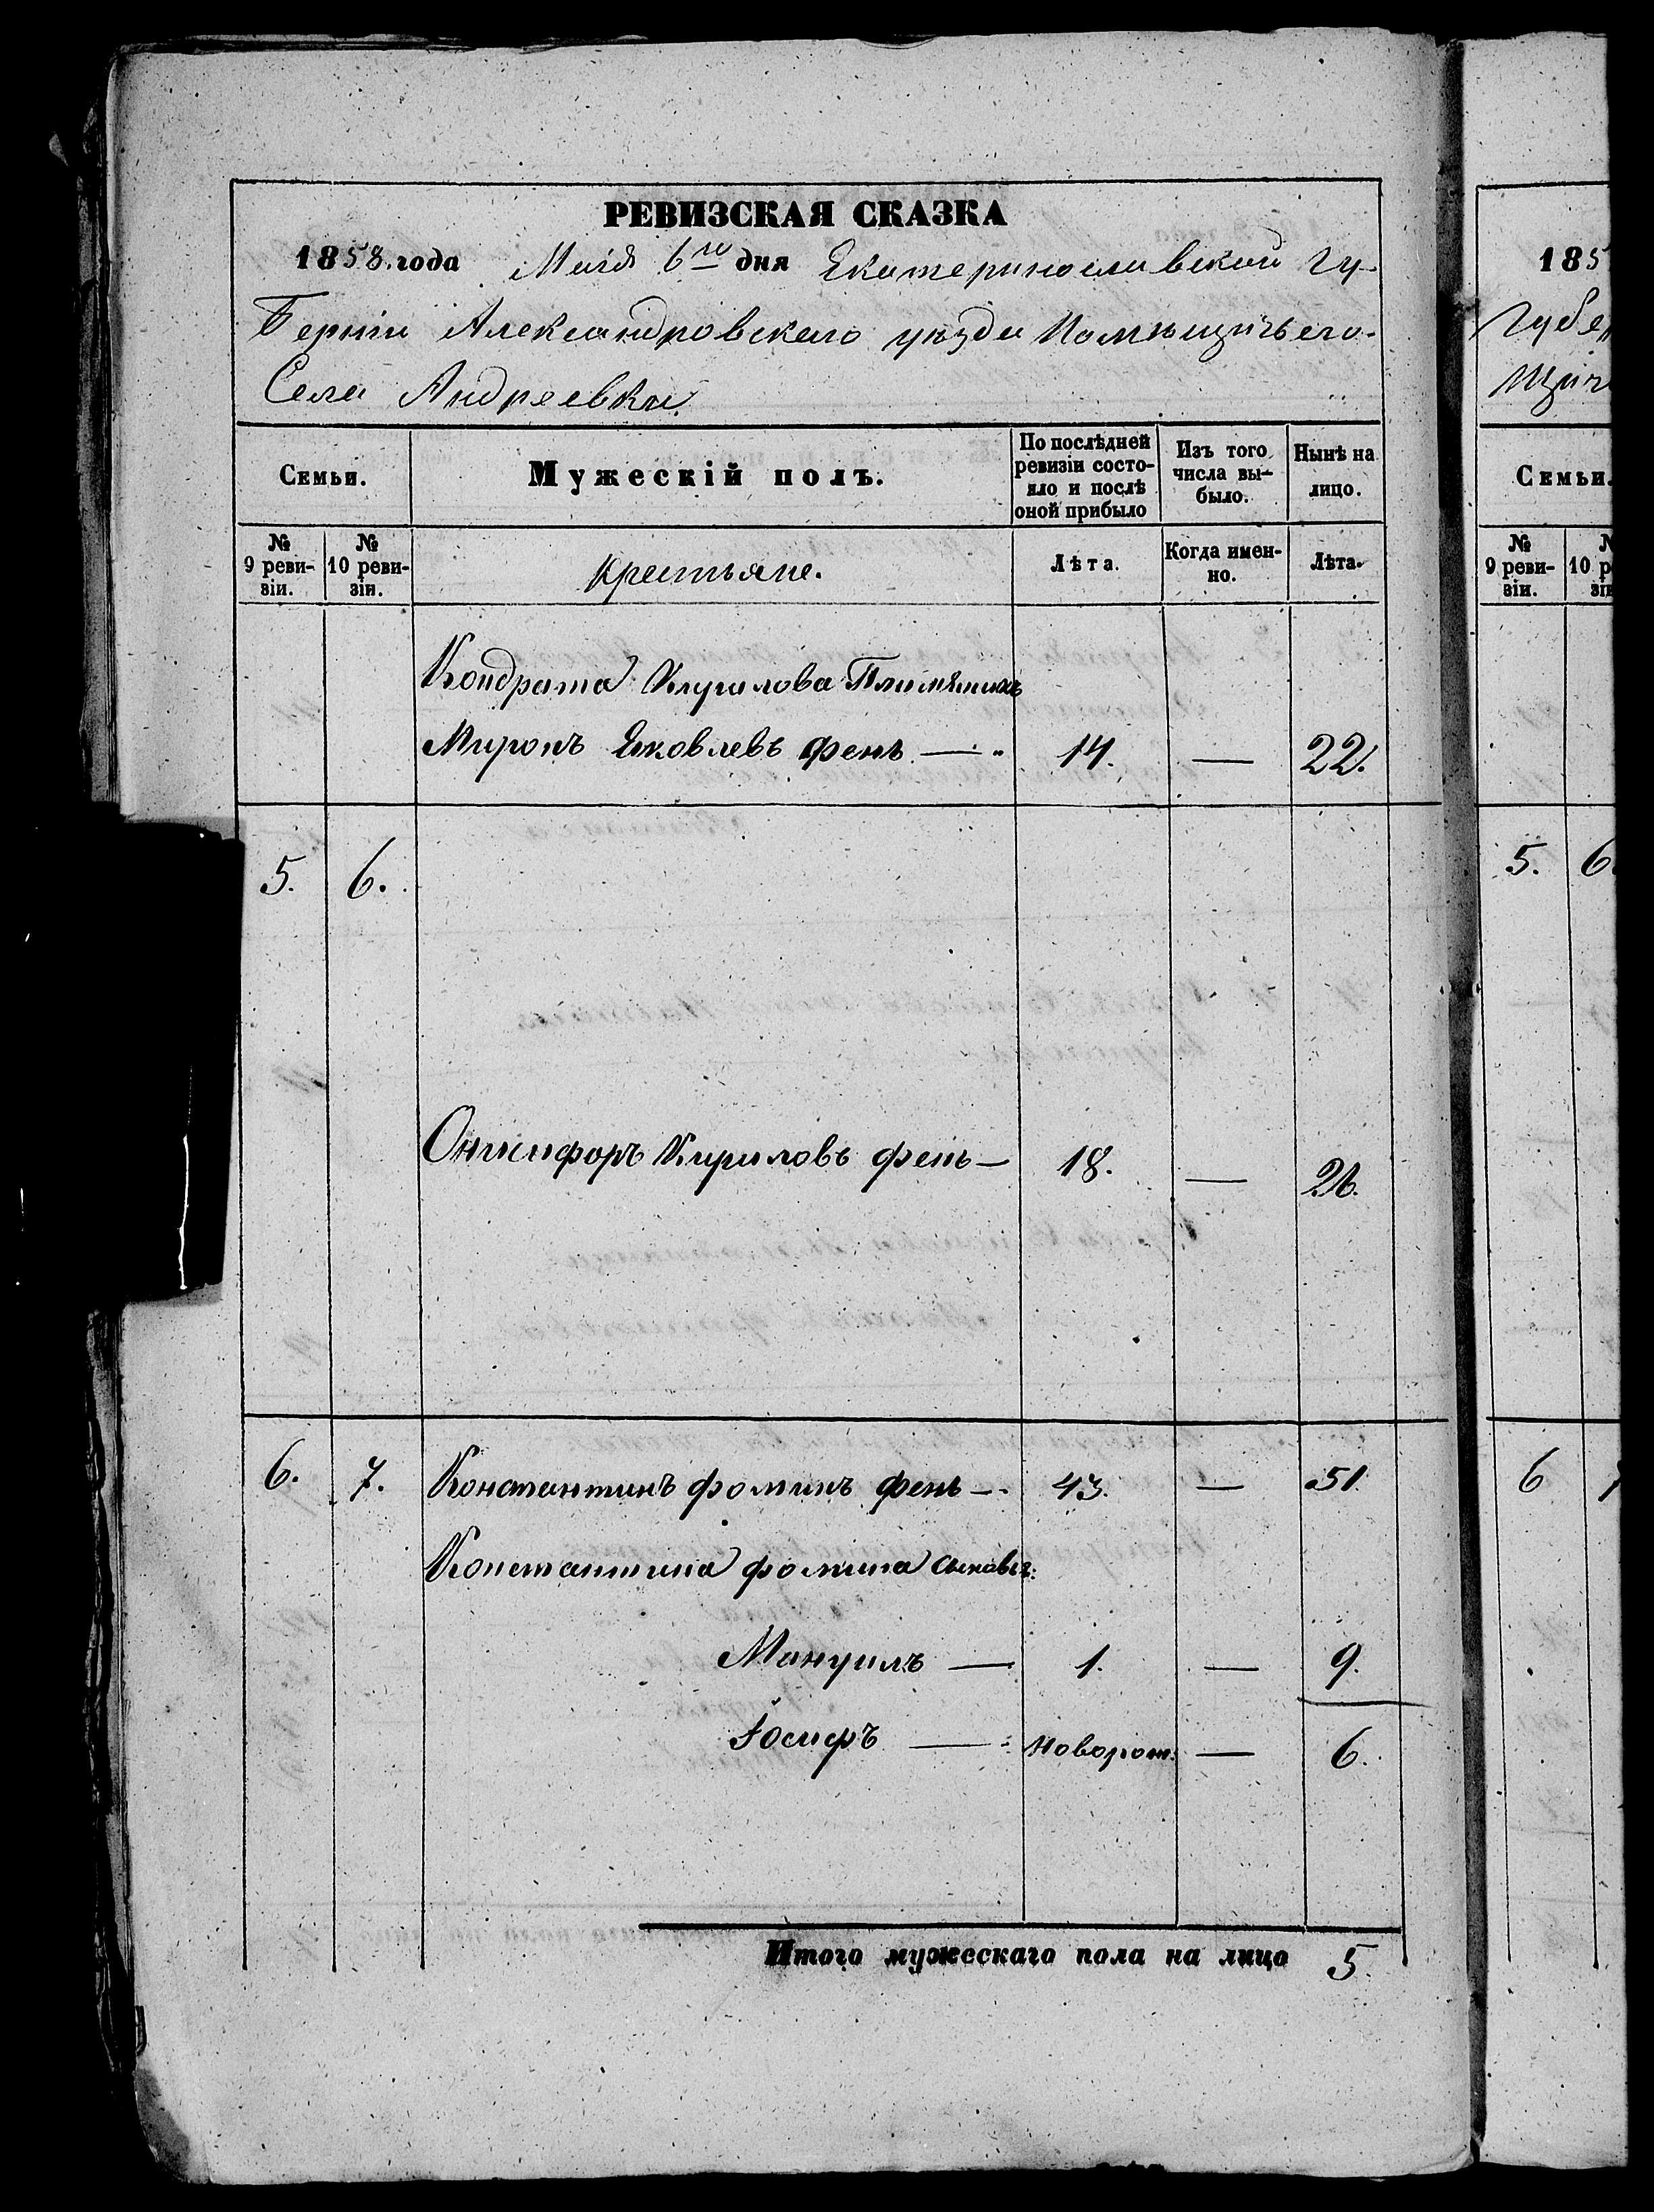 РЕВИЗСКАЯ СКАЗКА
1858. года Маія 6го дня Екатеринославской Гу-
берніи Александровскаго уѣзда Помѣщичьего
Села Андреевки.
Семьи.
Мужескій полъ.
По послѣдней ревизіи состояло и послѣ оной прибыло
Изъ того числа выбыло.
Нынѣ на лицо.
№ 9 ревизіи.
№ 10 ревизіи.
Крестьяне.
Лѣта.
Когда именно.
Лѣта.
Кондрата Кирилова Племяникъ
Миронъ Яковлевъ фень — 14. — 22.
5. 6.
Онисифоръ Кириловъ фень — 18. — 26.
6. 7. Константинъ фоминъ фень — 43. — 51.
Константина фомина сыновья:
Мануилъ — 1. — 9.
Іосифъ — новорож: — 6.
Итого мужескаго пола на лицо 5.
185
Губе
щич
Семьи.
№ 9 ревизіи.
10
5. 6
6